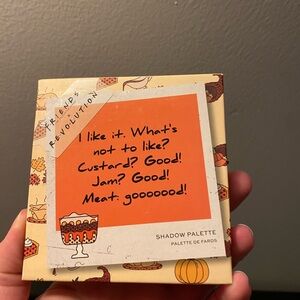 FRIENDS
X
REVOLUTION
I like it. What's
not to like?
Custard? Good!
Jam? Good!
Meat: gooooood!
SHADOW PALETTE
PALETTE DE FARDS